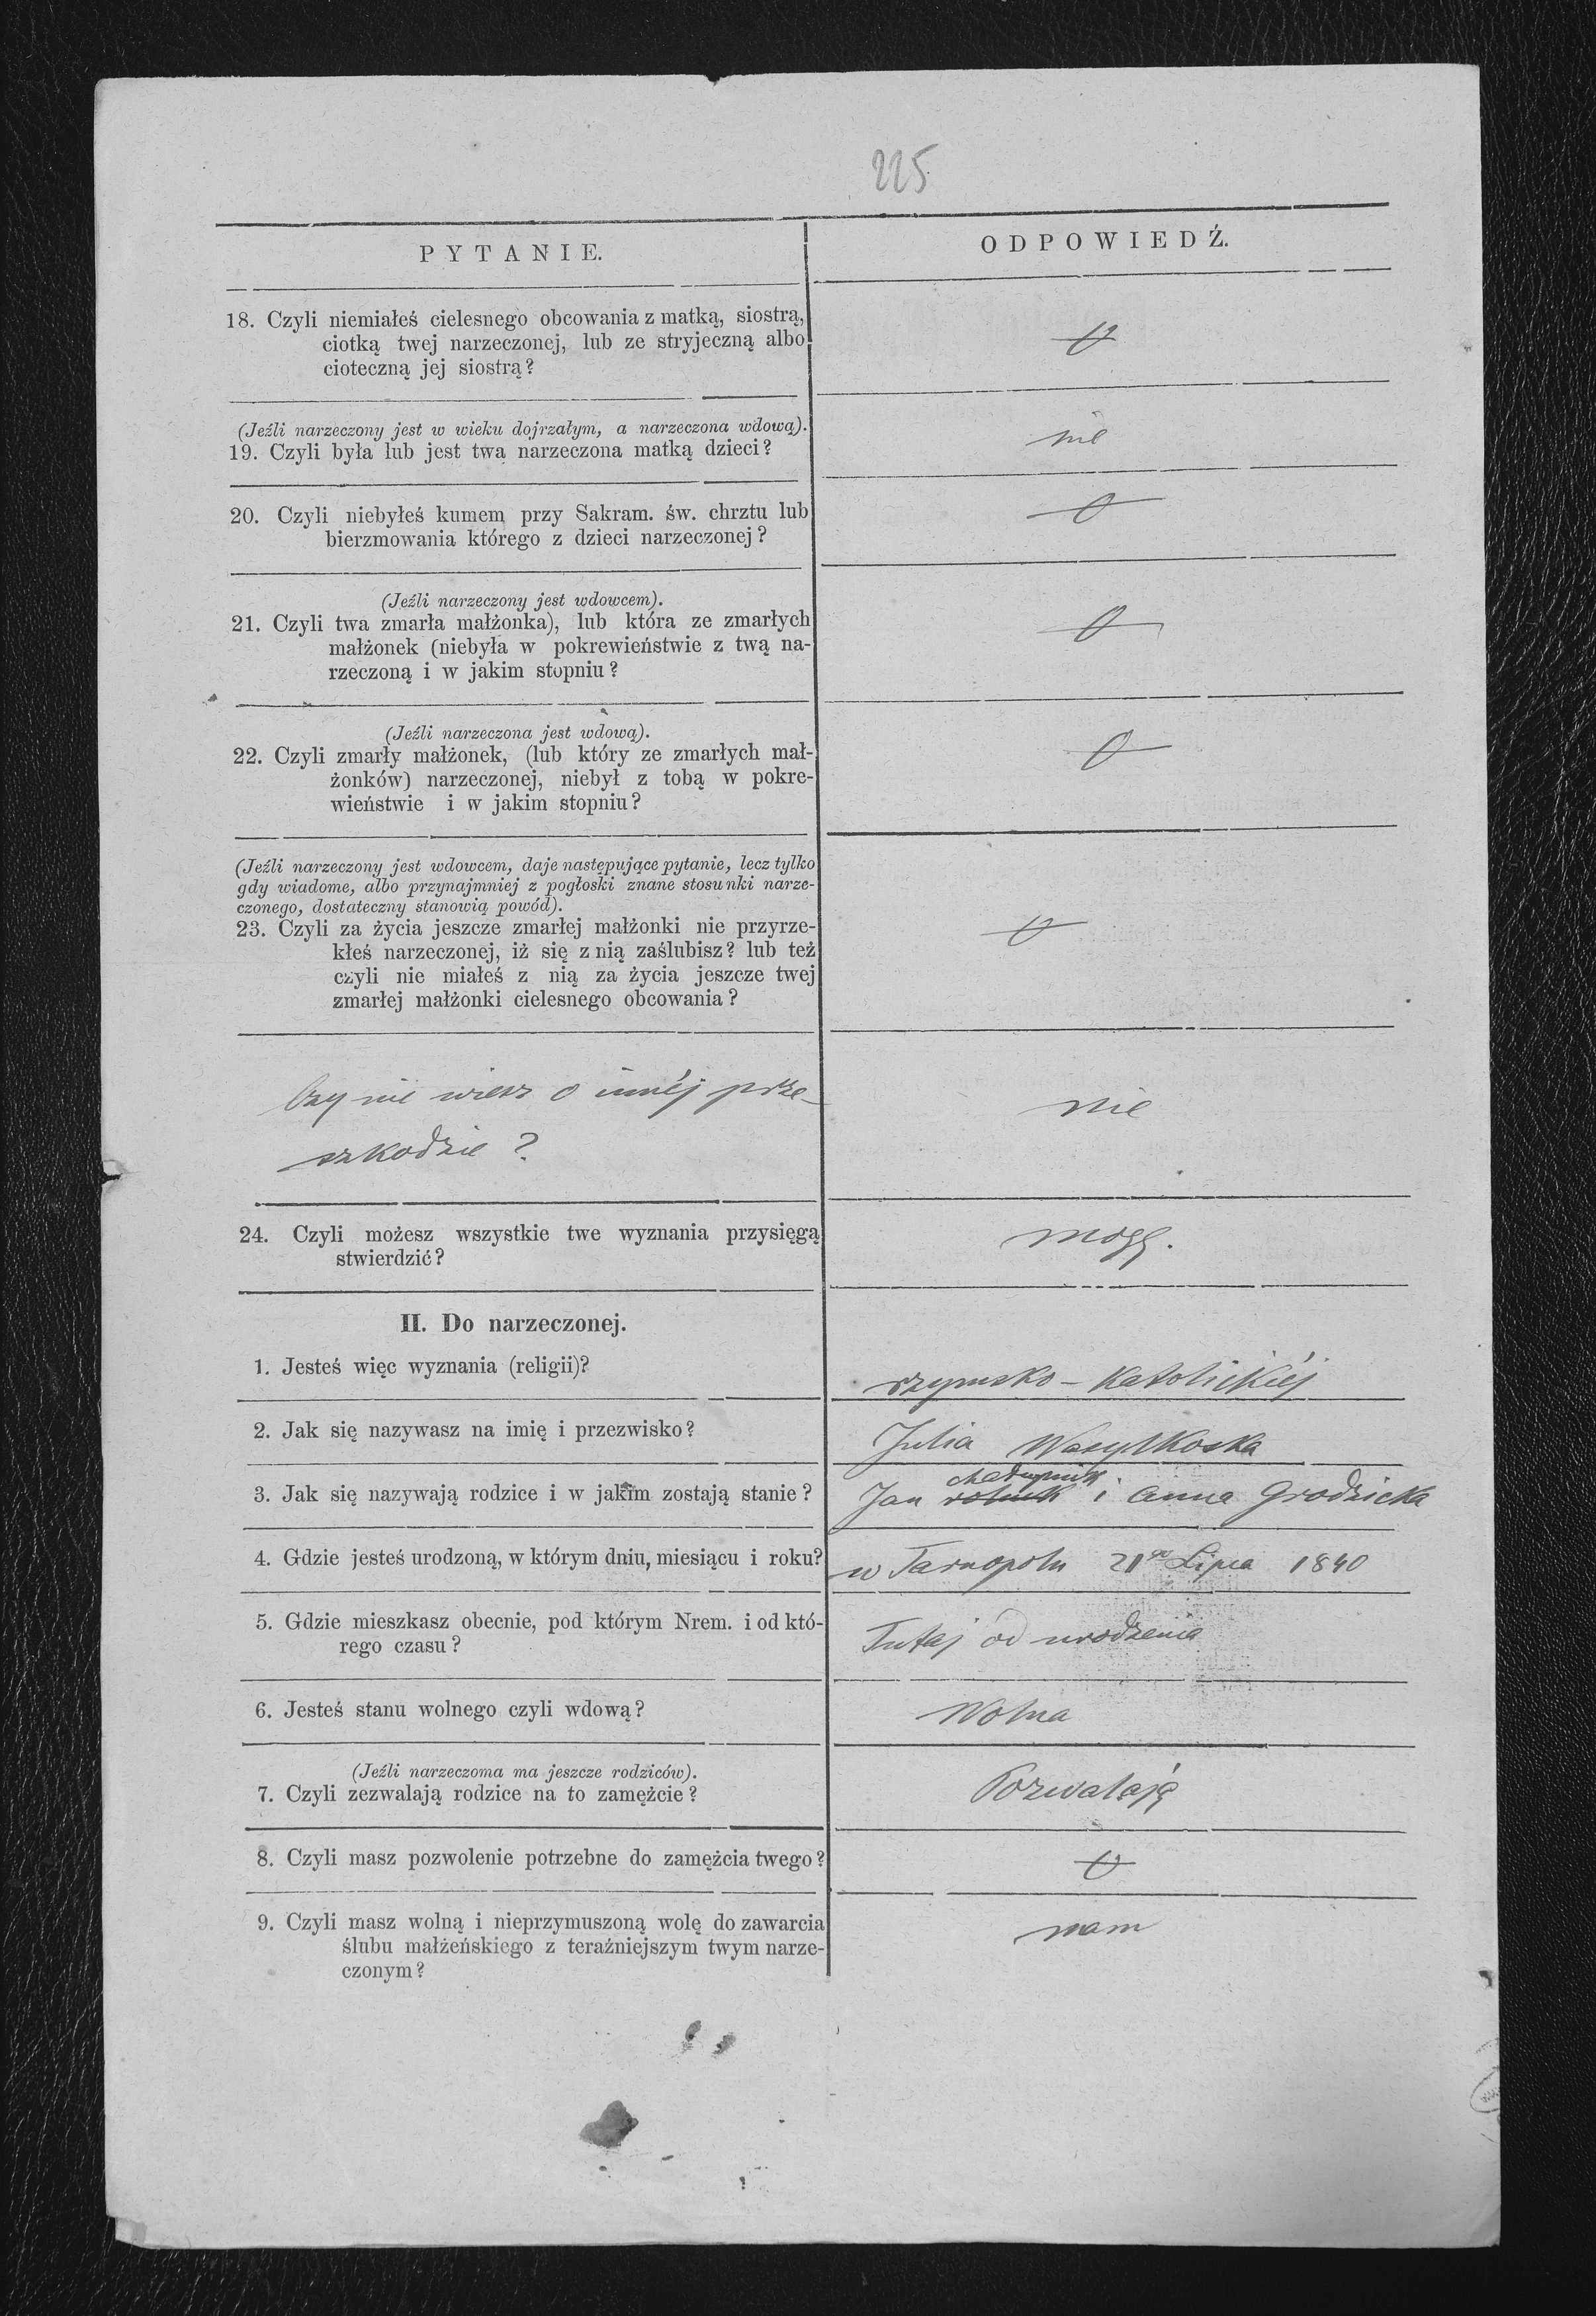 225
PYTANIE.
ODPOWIEDŹ.
18. Czyli niemiałeś cielesnego obcowania z matką, siostrą,
ciotką twej narzeczonej, lub ze stryjeczną albo
cioteczną jej siostrą?
0
(Jeźli narzeczony jest w wieku dojrzałym, a narzeczona wdową).
19. Czyli była lub jest twa narzeczona matką dzieci?
nie
20. Czyli niebyłeś kumem przy Sakram. św. chrztu lub
bierzmowania którego z dzieci narzeczonej?
0
(Jeźli narzeczony jest wdowcem).
21. Czyli twa zmarła małżonka), lub która ze zmarłych
małżonek (niebyła w pokrewieństwie z twą na-
rzeczoną i w jakim stopniu?
0
(Jeźli narzeczona jest wdową).
22. Czyli zmarły małżonek, (lub który ze zmarłych mał-
żonków) narzeczonej, niebył z tobą w pokre-
wieństwie i w jakim stopniu?
0
(Jeźli narzeczony jest wdowcem, daje następujące pytanie, lecz tylko
gdy wiadome, albo przynajmniej z pogłoski znane stosunki narze-
czonego, dostateczny stanowią powód).
23. Czyli za życia jeszcze zmarłej małżonki nie przyrze-
kłeś narzeczonej, iż się z nią zaślubisz? lub też
czyli nie miałeś z nią za życia jeszcze twej
zmarłej małżonki cielesnego obcowania?
0
Czy nie wiesz o innéj prze-
szkodzie?
nie
24. Czyli możesz wszystkie twe wyznania przysięgą
stwierdzić?
mogę.
II. Do narzeczonej.
1. Jesteś więc wyznania (religii)?
rzymsko - katolickiéj
2. Jak się nazywasz na imię i przezwisko?
Julia Wasylkoska
3. Jak się nazywają rodzice i w jakim zostają stanie?
chałupnik
Jan rolnik i Anna Grodzicka
4. Gdzie jesteś urodzoną, w którym dniu, miesiącu i roku?
w Tarnopolu 21go Lipca 1840
5. Gdzie mieszkasz obecnie, pod którym Nrem. i od któ-
rego czasu?
Tutaj od urodzenia
6. Jesteś stanu wolnego czyli wdową?
Wolna
(Jeźli narzeczoma ma jeszcze rodziców).
7. Czyli zezwalają rodzice na to zamężcie?
Pozwalają
8. Czyli masz pozwolenie potrzebne do zamężcia twego?
0
9. Czyli masz wolną i nieprzymuszoną wolę do zawarcia
ślubu małżeńskiego z teraźniejszym twym narze-
czonym?
mam